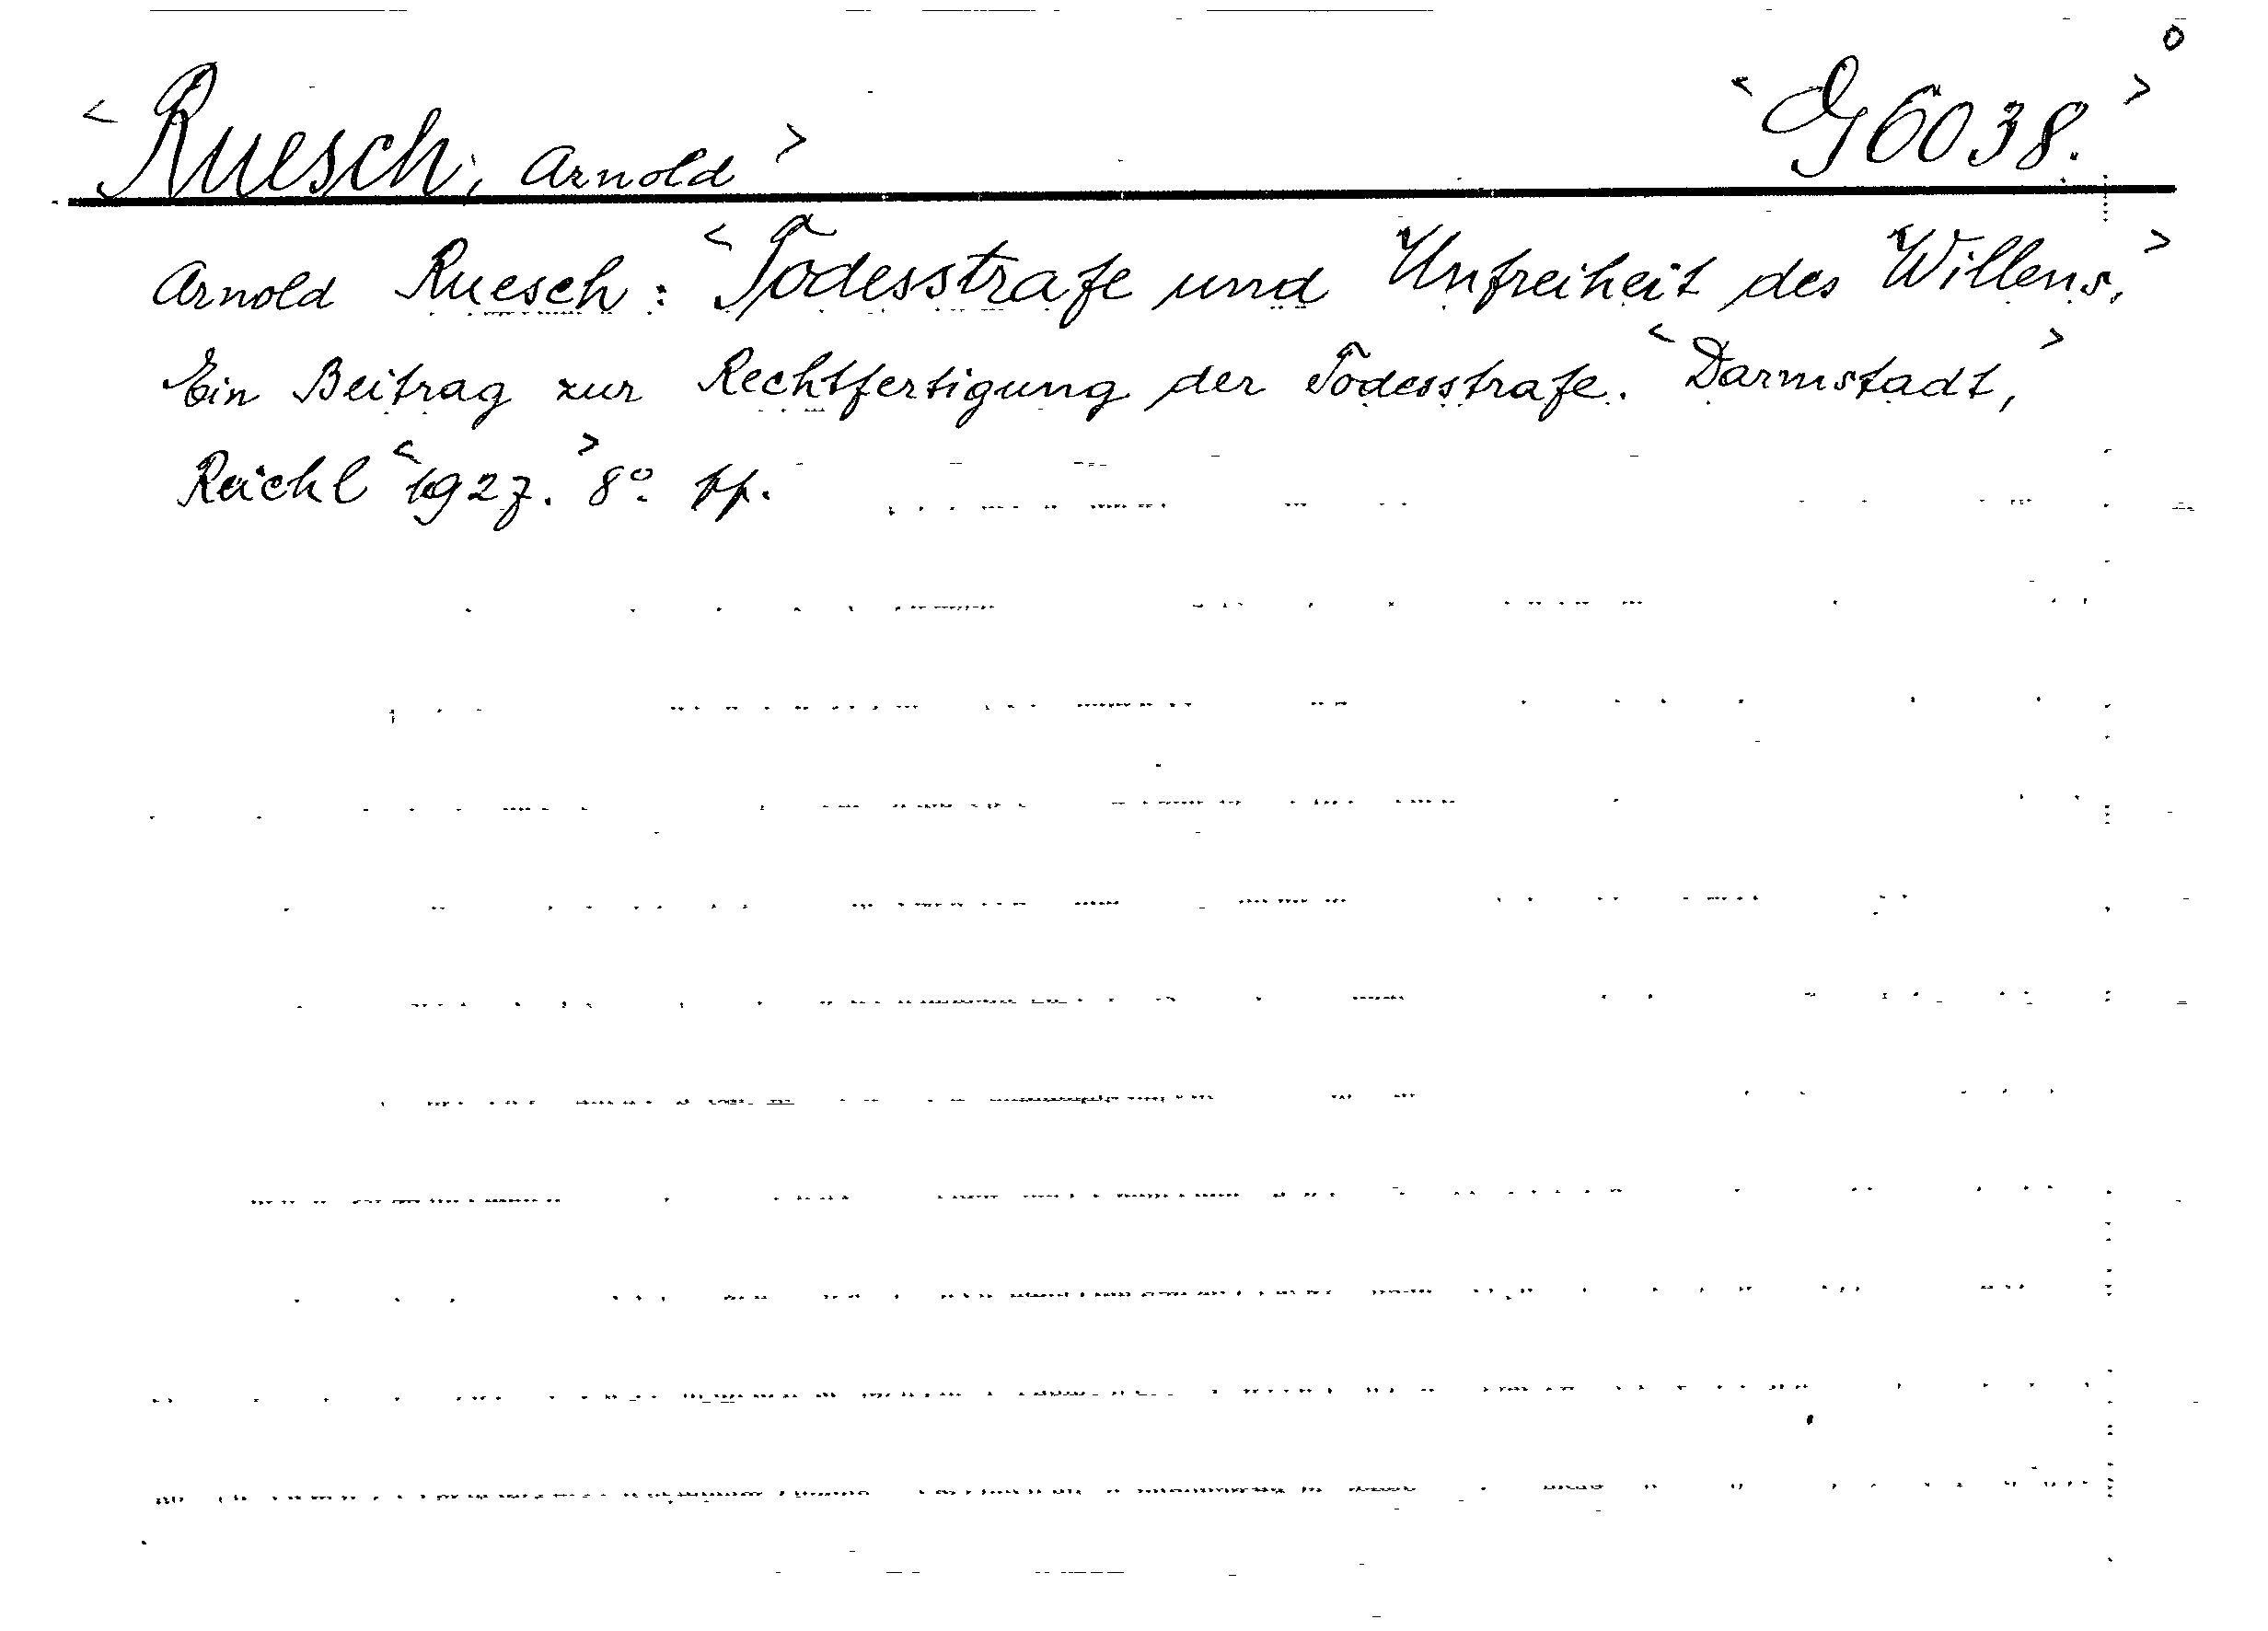 o
< Ruesch, Arnold > < G 6038. >
Arnold Ruesch: < Todesstrafe und Unfreiheit des Willens. >
Ein Beitrag zur Rechtfertigung der Todesstrafe. < Darmstadt, >
Reichl < 1927. > 8o.